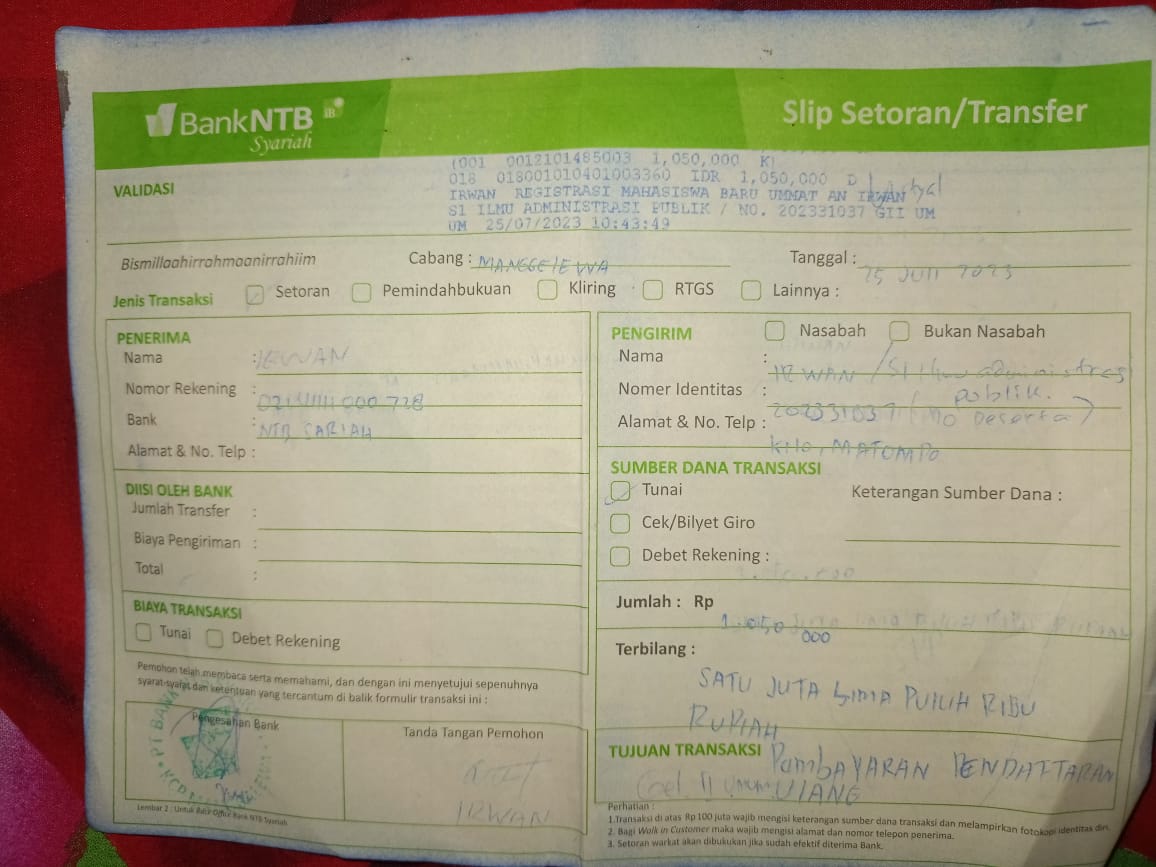 BankNTB iB
Syariah
Slip Setoran/Transfer
VALIDASI
(001 0012101485003 1,050,000 K)
018 018001010401003360 IDR 1,050,000 D
IRWAN REGISTRASI MAHASISWA BARU UMMAT AN IRWAN
S1 ILMU ADMINISTRASI PUBLIK / NO. 202331037 GII UM
UM 25/07/2023 10:43:49
Bismillaahirrahmaanirrahiim
Cabang : MANGGELEWA
Tanggal : 25 JULI 2023
Jenis Transaksi Setoran Pemindahbukuan Kliring RTGS Lainnya :
PENERIMA
Nama : IRWAN
Nomor Rekening :
Bank : NTB SARIAH
Alamat & No. Telp :
DIISI OLEH BANK
Jumlah Transfer :
Biaya Pengiriman :
Total :
BIAYA TRANSAKSI
Tunai Debet Rekening
Pemohon telah membaca serta memahami, dan dengan ini menyetujui sepenuhnya
syarat-syarat dan ketentuan yang tercantum di balik formulir transaksi ini :
Pengesahan Bank
PT BANK
Tanda Tangan Pemohon
IRWAN
Lembar 2 : Untuk Back Office Bank NTB Syariah
PENGIRIM Nasabah Bukan Nasabah
Nama : IRWAN / S1 Ilmu administrasi
publik.
Nomer Identitas : 202331037 / (No Peserta)
Alamat & No. Telp : kilo, MATOMPO
SUMBER DANA TRANSAKSI
Tunai
Keterangan Sumber Dana :
Cek/Bilyet Giro
Debet Rekening :
Jumlah : Rp
1.050
000
Terbilang :
SATU JUTA Lima PULUH RIBU
RUPIAH
TUJUAN TRANSAKSI PembAYARAN PENDAFTARAN
(Gel II) Umum ULANG
Perhatian :
1.Transaksi di atas Rp 100 juta wajib mengisi keterangan sumber dana transaksi dan melampirkan fotokopi identitas diri.
2. Bagi Walk in Customer maka wajib mengisi alamat dan nomor telepon penerima.
3. Setoran warkat akan dibukukan jika sudah efektif diterima Bank.